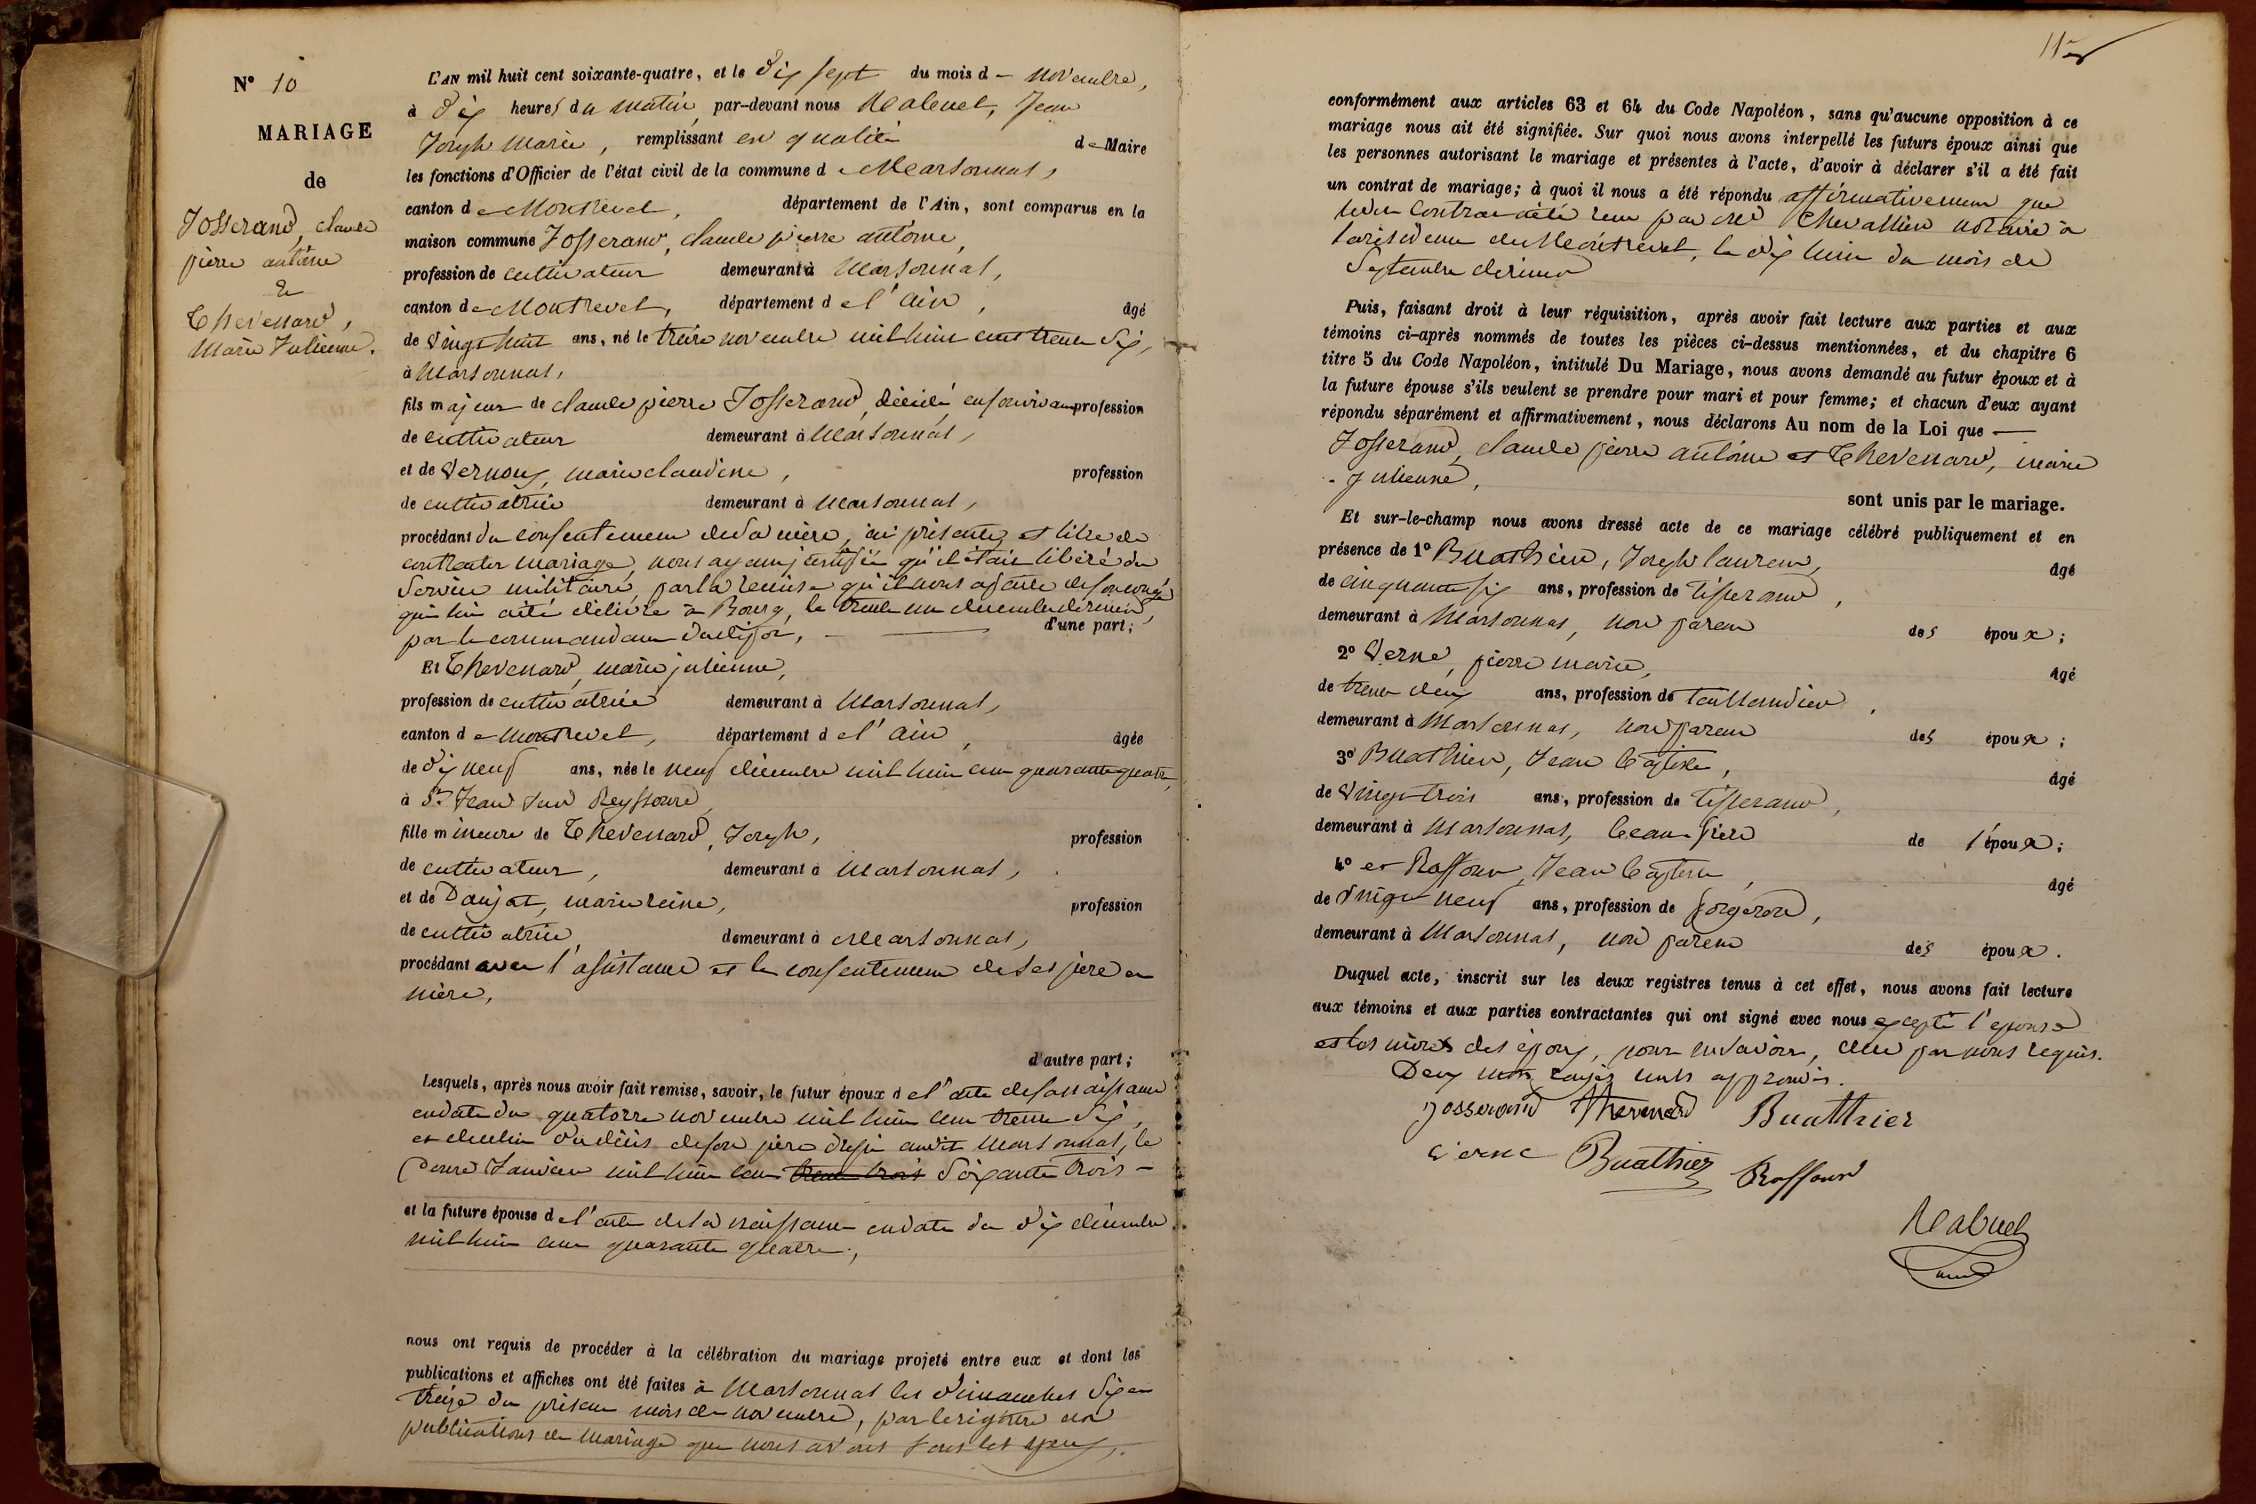 N° 10
MARIAGE
de
Josserand, claude
pierre antoine
&
Thevenard,
Marie Julienne.
L'AN mil huit cent soixante-quatre, et le dix sept du mois d - novembre,
à dix heures du matin, par-devant nous Mabuel, Jean
Joseph Marie, remplissant en qualité de Maire
les fonctions d'Officier de l'état civil de la commune de Marsonnas,
canton de Montrevel, département de l'Ain, sont comparus en la
maison commune Josserand, claude pierre antoine,
profession de cultivateur demeurant à Marsonnas,
canton de Montrevel, département de l'ain, âgé
de vingt huit ans, né le treize novembre mil huit cent trente six,
à Marsonnas,
fils majeur de claude pierre Josserand, décédé, en son vivant profession
de cultivateur demeurant à Marsonnas,
et de Vernoux, marie claudine, profession
de cultivatrice demeurant à Marsonnas,
procédant du consentement de sa mère, ici présente, et libre de
contracter mariage, nous ayant justifié qu'il était libéré du
service militaire, par la remise qu'il nous a faite de son congé
qui lui a été délivré à Bourg, le trente un décembre dernier,
par le commandant du dépot, d'une part;
Et Thevenard, marie julienne,
profession de cultivatrice demeurant à Marsonnas,
canton de Montrevel, département de l'ain, âgée
de dix neuf ans, née le neuf décembre mil huit cent quarante quatre,
à St. Jean sur Reyssouze,
fille mineure de Thevenard, Joseph, profession
de cultivateur, demeurant à Marsonnas,
et de Danjat, marie reine, profession
de cultivatrice, demeurant à Marsonnas,
procédant avec l'assistance et le consentement de ses père et
mère,
d'autre part;
Lesquels, après nous avoir fait remise, savoir, le futur époux de l'acte de sa naissance
en date du quatorze novembre mil huit cent trente six,
et de celui du décès de son père audit Marsonnas, le
douze Janvier mil huit cent trente trois soixante trois -
et la future épouse de l'acte de sa naissance en date du dix décembre
mil huit cent quarante quatre,
nous ont requis de procéder à la célébration du mariage projeté entre eux et dont les
publications et affiches ont été faites à Marsonnas les dimanches six et
treize du présent mois de novembre, par le registre des
publications de mariage que nous avons sous les yeux,
11
conformément aux articles 63 et 64 du Code Napoléon, sans qu'aucune opposition à ce
mariage nous ait été signifiée. Sur quoi nous avons interpellé les futurs époux ainsi que
les personnes autorisant le mariage et présentes à l'acte, d'avoir à déclarer s'il a été fait
un contrat de mariage; à quoi il nous a été répondu affirmativement que
ledit contrat a été reçu par Me Chevallier notaire à
la résidence de Montrevel, le dix huit du mois de
Septembre dernier
Puis, faisant droit à leur réquisition, après avoir fait lecture aux parties et aux
témoins ci-après nommés de toutes les pièces ci-dessus mentionnées, et du chapitre 6
titre 5 du Code Napoléon, intitulé Du Mariage, nous avons demandé au futur époux et à
la future épouse s'ils veulent se prendre pour mari et pour femme; et chacun d'eux ayant
répondu séparément et affirmativement, nous déclarons Au nom de la Loi que —
Josserand, claude pierre antoine et Thevenard, marie
Julienne,
sont unis par le mariage.
Et sur-le-champ nous avons dressé acte de ce mariage célébré publiquement et en
présence de 1° Buathier, Joseph laurent, âgé
de cinquante six ans, profession de tisserand,
demeurant à Marsonnas, non parent des époux;
2° Verne, pierre marie, âgé
de trente deux ans, profession de taillandier,
demeurant à Marsonnas, non parent des époux;
3° Buathier, Jean baptiste, âgé
de vingt trois ans, profession de tisserand,
demeurant à Marsonnas, beau-frère de l'époux;
4° et Raffour, Jean baptiste, âgé
de vingt neuf ans, profession de forgeron,
demeurant à Marsonnas, non parent des époux.
Duquel acte, inscrit sur les deux registres tenus à cet effet, nous avons fait lecture
aux témoins et aux parties contractantes qui ont signé avec nous excepté l'épouse
et les mères des époux, pour ne savoir, de ce par nous requis.
Deux mots rayés nuls approuvés.
Josserand Thevenard Buathier
Verne Buathier Raffour
Mabuel